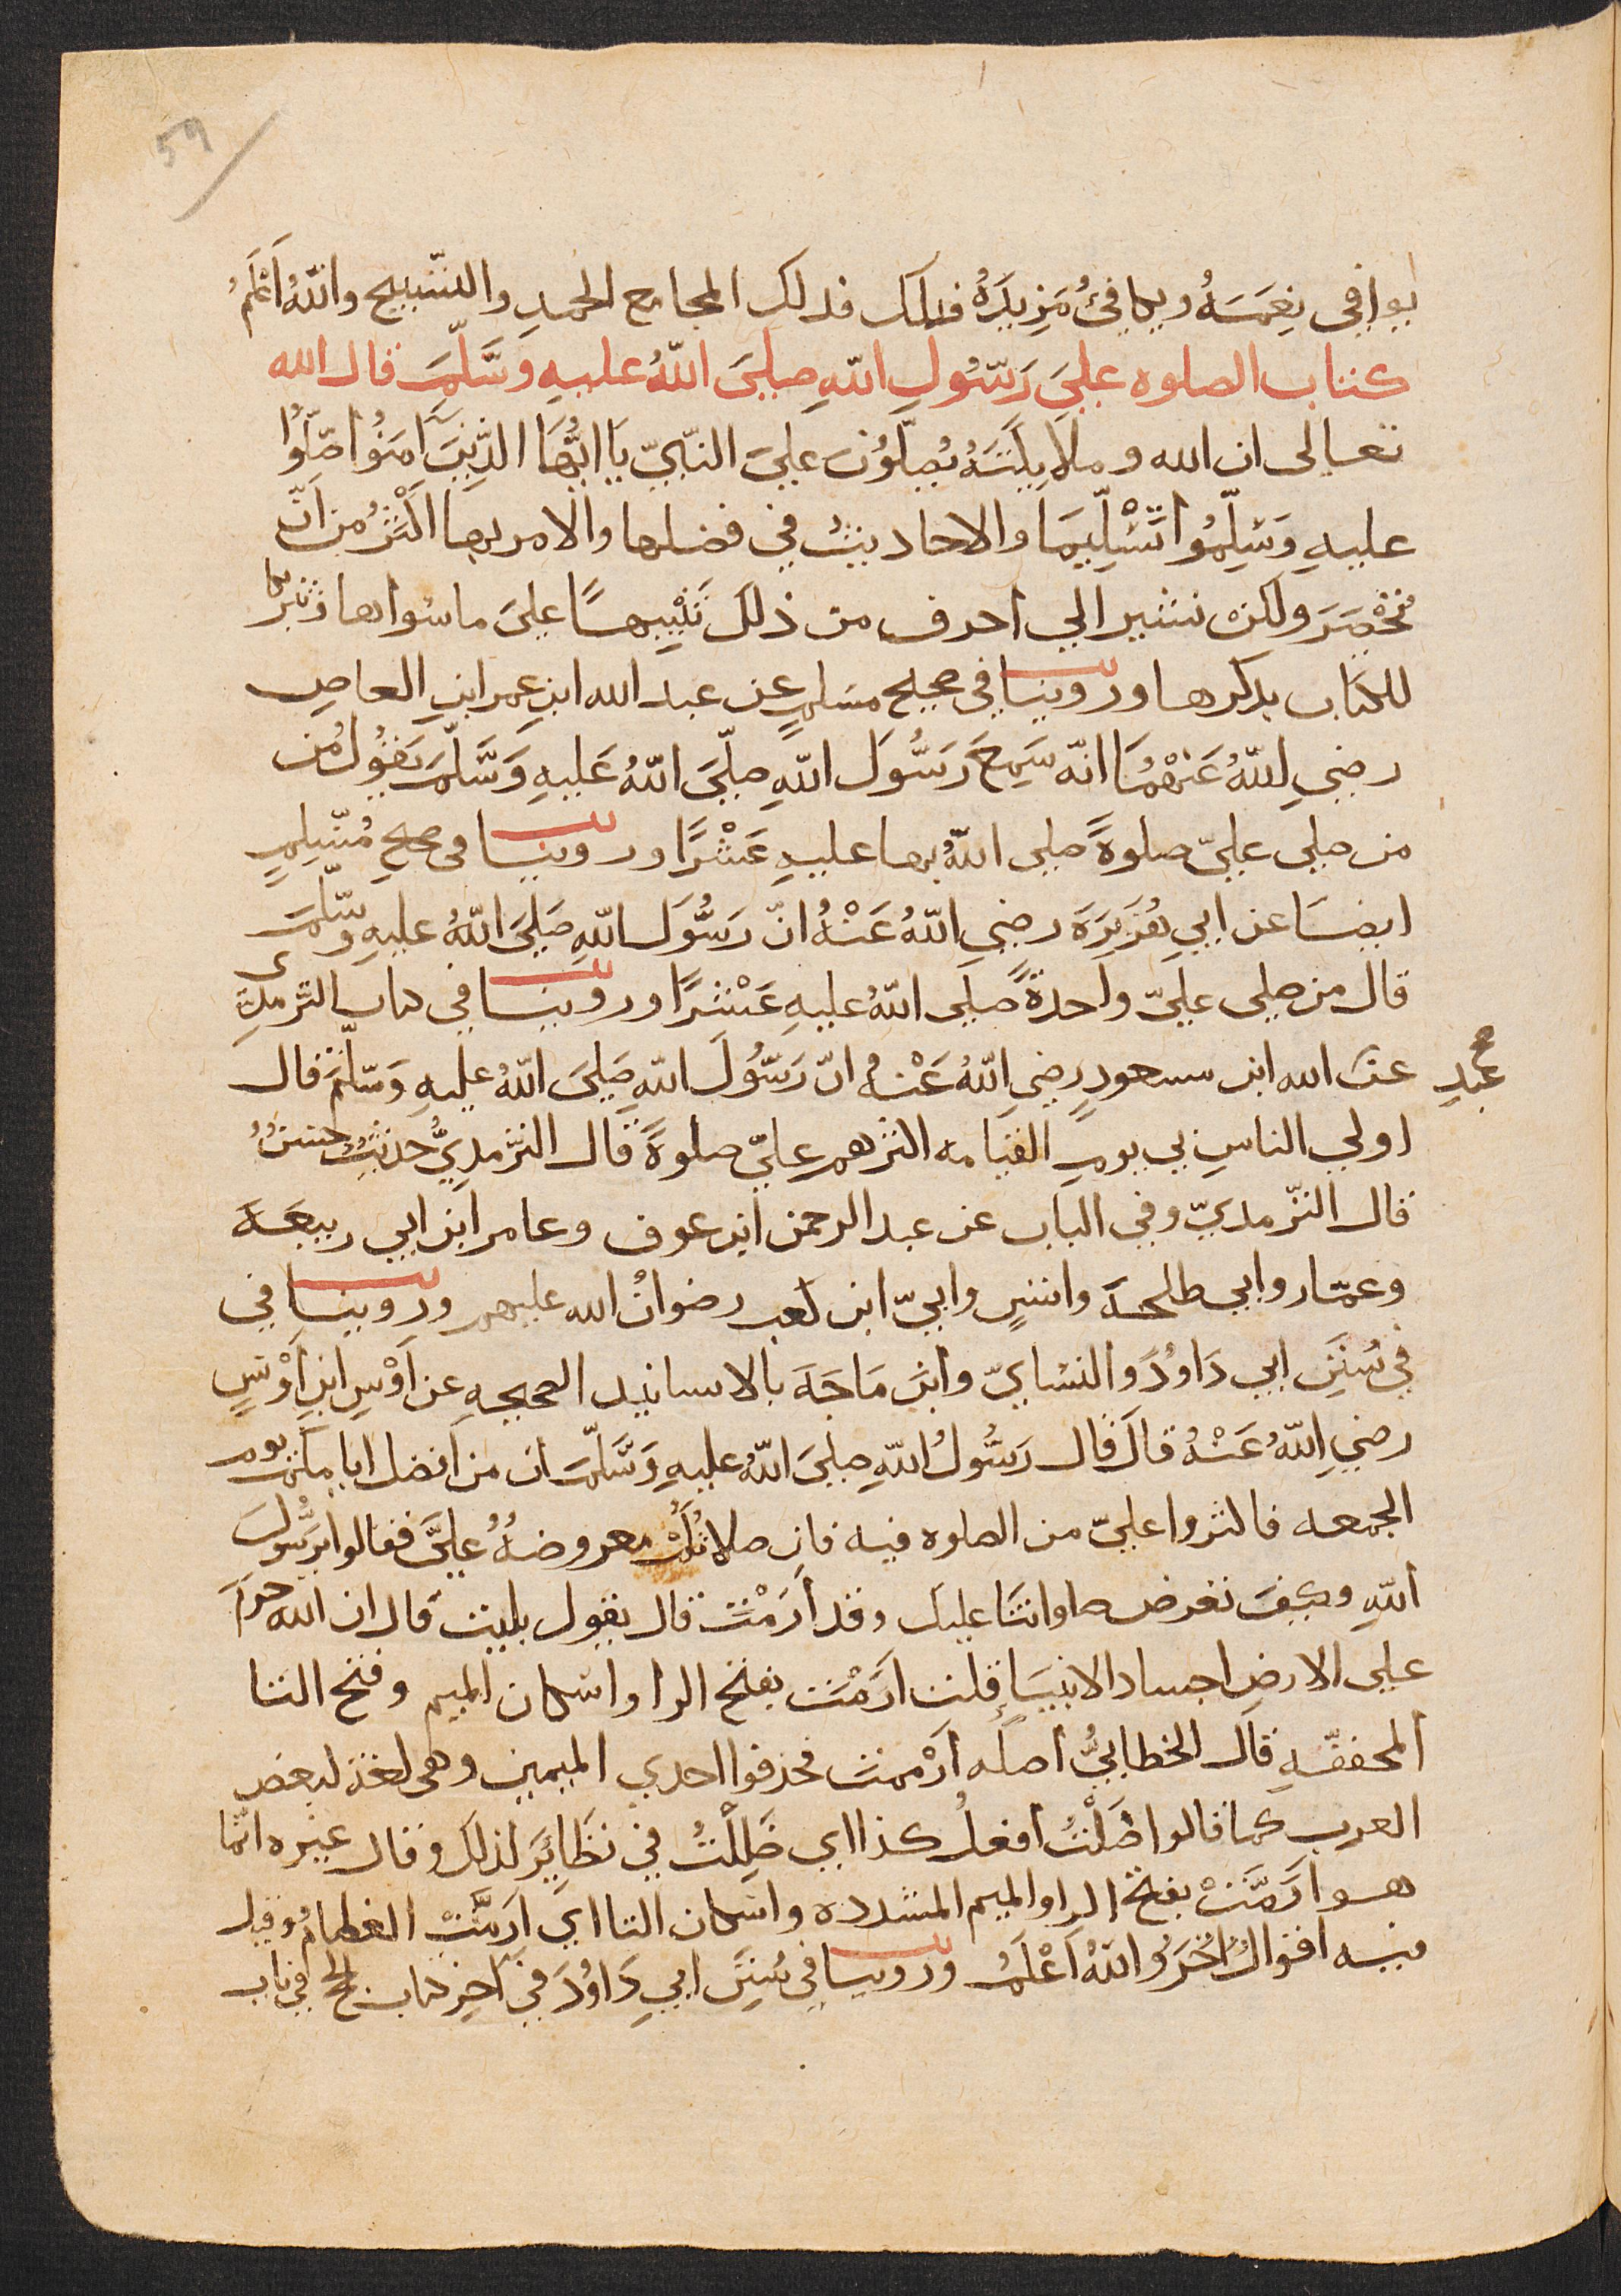 59
يوافي نِعَمَهُ ويكافئُ مَزِيدَهُ فذلك فذلك المجامع الحمدِ والتسبيح واللهُ اَعْلَمُ
كتاب الصلوه عليَ رَسُولِ اللهِ صلىَ اللهُ عليهِ وَسَّلمَ قال الله
تعالى ان الله وملاَيِكَتَهُ يُصَلّوُنَ عليَ النّبيّ يَا ايُّهَا الذِّينَ آمَنُوا صَلّوُا
عليهِ وَسَلِّمُوا تَسْلِيمَا والاحاديث في فضلها والامر بها اكْثَرُ من اَنّ
تُحْصَرَ ولكن نشير الي احرف من ذلكَ تَنْبِيهًا عليَ ما سواها وتبركا
للكتاب بذكرها وروينا في صحيح مسلمٍ عن عبد الله ابنِ عمر ابنِ العاصِ
رضيِ اللهُ عَنهُمَا انّه سَمِعَ رَسُّوَل اللهِ صلّىَ اللهُ عَليهِ وَسَّلمَ يَقوُل مُن
من صلى عليّ صلوةً صلى اللهُ بها عليهِ عَشْرًا وروينا في صحيح مُسّلِمٍ
ايضَا عن ابي هُرَيرَةَ رضيِ اللهُ عَنْهُ انّ رَسُّوَل اللهِ صَلىَ اللهُ عليهِ وسّلمَ
قال من صلى عليّ واحدةً صلى اللهُ عليهِ عَشْرًا وروينا في كتاب الترمدِي
عن الله ابن مسعودٍ رضيِ اللهُ عَنْهُ انّ رَسُّوَل اللهِ صَلىَ اللهُ عليهِ وَسّلمَ قال
عَبدِ صح
اولى الناسِ بي يوم القيامه اكثرهم عليّ صلوةً قال الترمديُّ حديثُ حسنُ
قال الترّمديّ وفي الباب عن عبد الرحمن ابن عوف وعامر ابن ابي ربيعَة
وعمّار وابي طلحة وانسٍ وابيّ ابن كعبٍ رضوانُ الله عليهم وروينا في
في سُنَنِ ابي دَاوُدَ والنسّايّ وابن مَاجَة بالاسانيد الصحيحهِ عن اَوْسِ ابنِ اَوْسٍ
رضيِ اللهُ عَنْهُ قالَ قال رَسُّولُ اللهِ صلىَ اللهُ عليهِ وَسَّلمَ ان من افضل ايامكم يوم
الجمعه فاكثروا عليّ من الصلوه فيه فان صلاتكُمْ معروضهُ عليَّ فقالوا يرسُّولَ
اللهِ وكيفَ تعرض صلواتنَا عليكَ وقد اَرَمْتَ قال يقول بليتَ قال ان الله حرّم
على الارضِ اجساد الانبيَا قلت ارَمْتَ بفتح الرا واسكان الميم وفتح التا
المخففّهِ قال الخطابيُّ اصلُه ارْممتَ فحذفوا احدي الميمين وهي لغة لبعض
العرب كما قالوا ظَلْتُ افعلُ كذا اي ظَلِلْتُ في نظَايِرَ لذلكَ وقال غيره انّما
هو ارَمَّتْ بفتح الرا والميم المشدده واسكان التا اي ارَمَّتْ العظامُ وقيل
فيه اقوالُ اُخَرُ واللهُ اَعْلَمُ وروينا في سُنَنِ ابيِ دَاوُدَ في آخِرِ كتاب الحج في باب